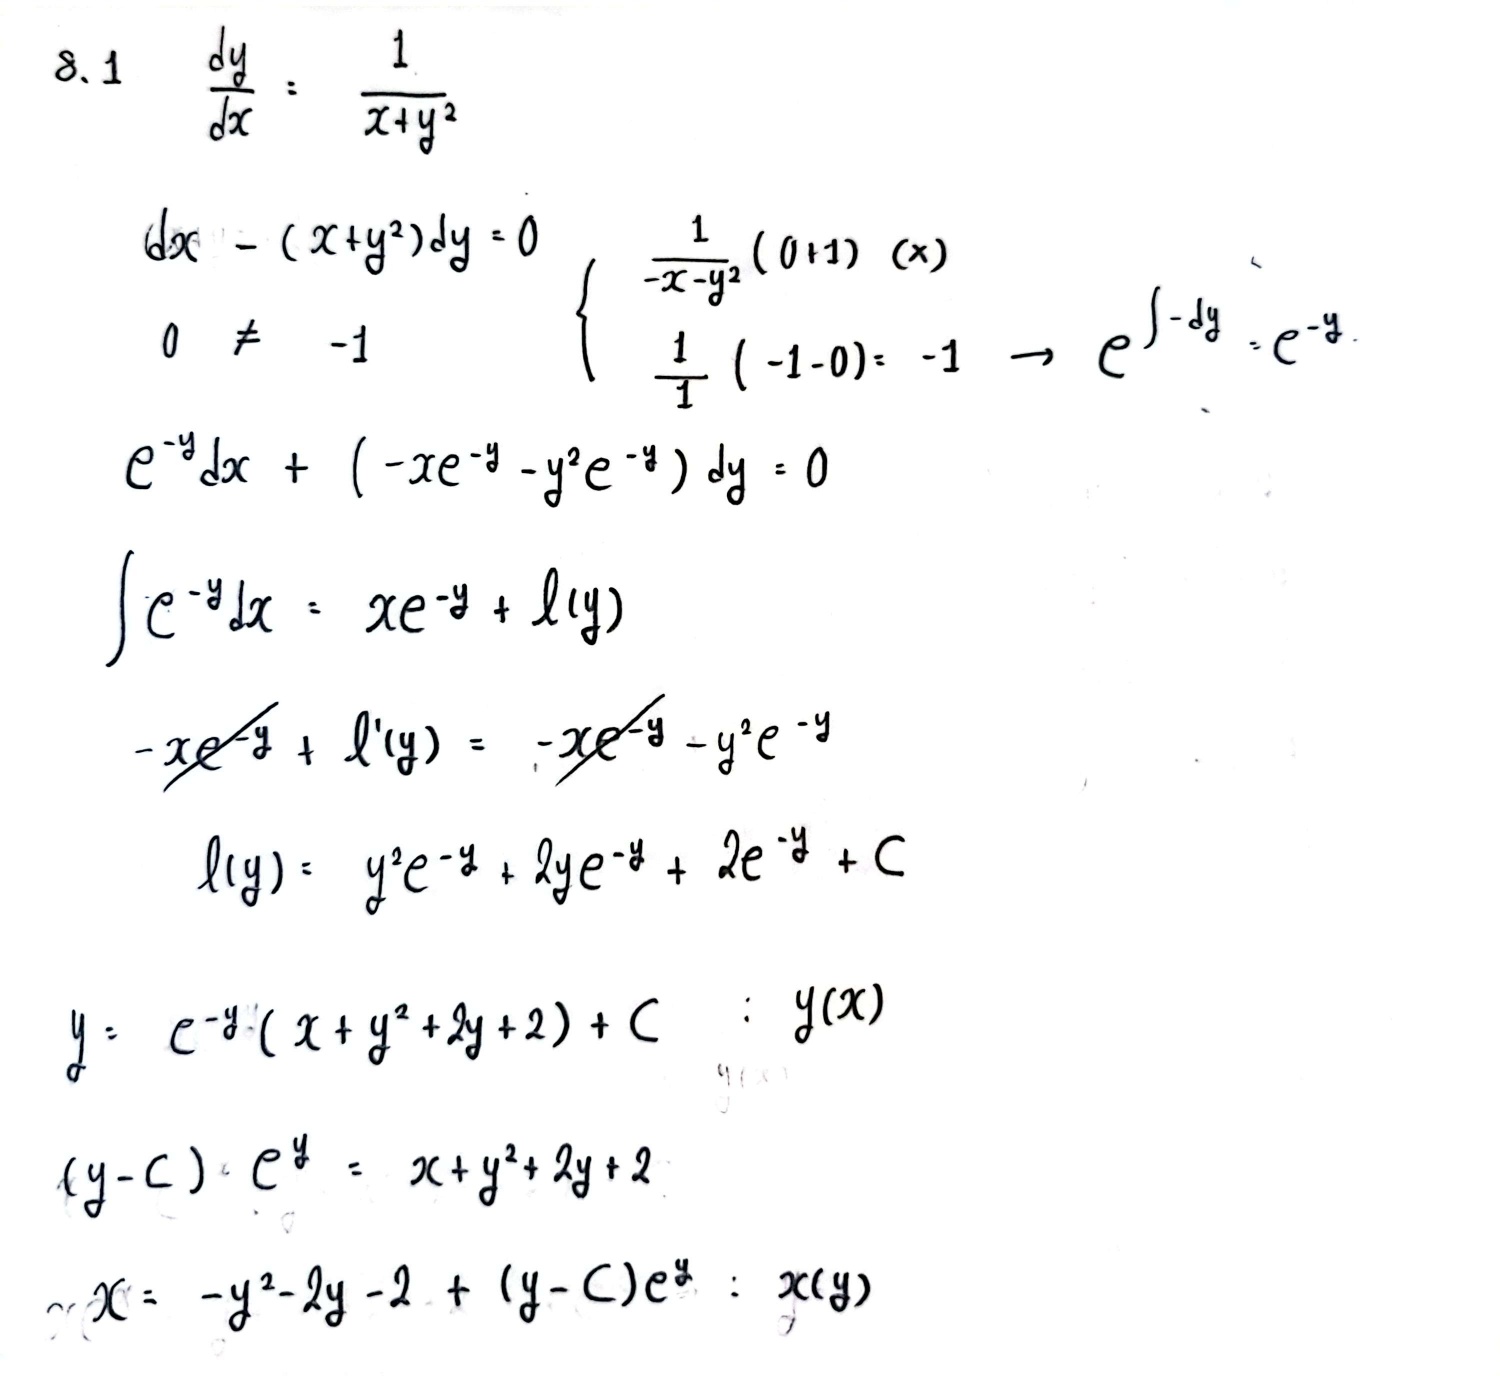 8.1 dy/dx = 1/(x+y²)
dx - (x+y²)dy = 0 { 1/(-x-y²) (0+1) (x)
0 ≠ -1 1/1 (-1-0) = -1 → e^∫-dy = e^-y.
e^-y dx + (-xe^-y - y²e^-y) dy = 0
∫e^-y dx = xe^-y + l(y)
-xe^-y + l'(y) = -xe^-y - y²e^-y
l(y) = y²e^-y + 2ye^-y + 2e^-y + C
y = e^-y (x + y² + 2y + 2) + C : y(x)
(y-C) · e^y = x + y² + 2y + 2
x = -y² - 2y - 2 + (y-C)e^y : x(y)